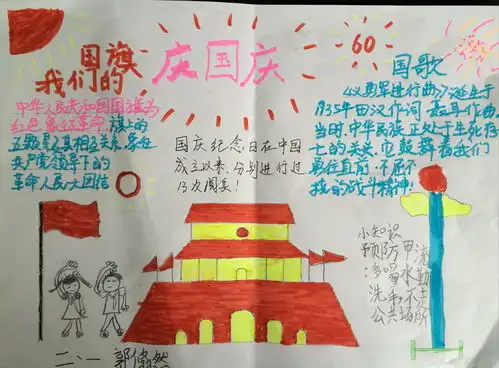 我们的国旗
中华人民共和国国旗为
红色象征革命,旗上的
五颗星及其相互关系,象征
共产党领导下的
革命人民大团结
庆国庆
60
国庆纪念日在中国
成立以来,分别进行过
13次阅兵!
国歌
《义勇军进行曲》诞生于
1935年田汉作词 聂耳作曲。
当时,中华民族正处于生死存
亡的关头,它鼓舞着我们
勇往直前,不屈不
挠的战斗精神!
小知识
预防甲流
:多喝水勤
洗手,不去
公共场所
二、一 郭倩然